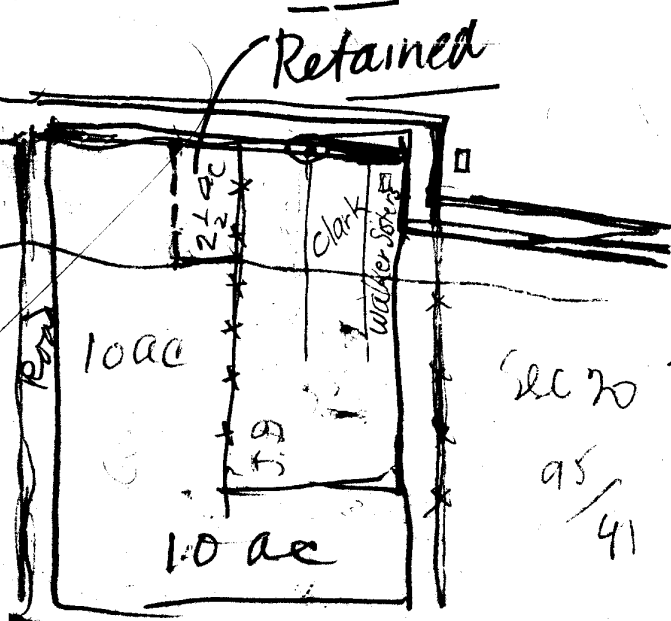 Retained
2 1/2 ac
Clark
Walker Sisters
Road
10 ac
Sec 20
95/41
J.9
10 ac